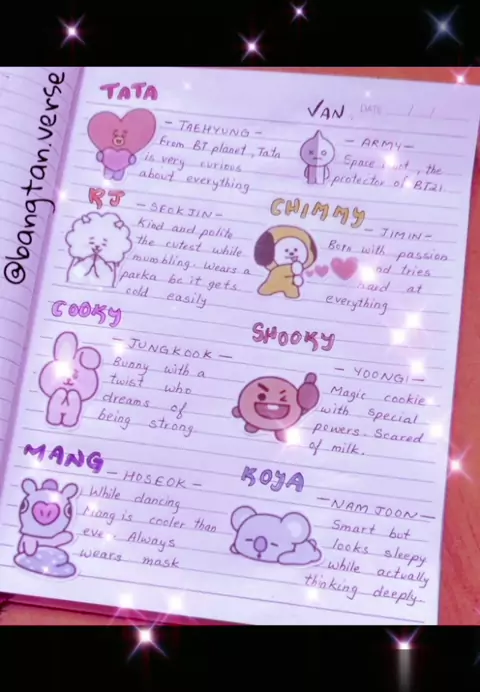 @bangtan.verse
TATA
- TAEHYUNG -
From BT planet, Tata
is very curious
about everything
VAN
DATE / /
- ARMY -
Space, the
protector of BT21.
RJ
- SEOKJIN -
Kind and polite
the cutest while
mumbling. Wears a
parka bc it gets
cold easily
CHIMMY
- JIMIN -
Born with passion
and tries
hard at
everything
COOKY
- JUNGKOOK -
Bunny with a
twist who
dreams of
being strong
SHOOKY
- YOONGI -
Magic cookie
with special
powers. Scared
of milk.
MANG
- HOSEOK -
While dancing
Mang is cooler than
ever. Always
wears mask
KOYA
- NAMJOON -
Smart but
looks sleepy
while actually
thinking deeply